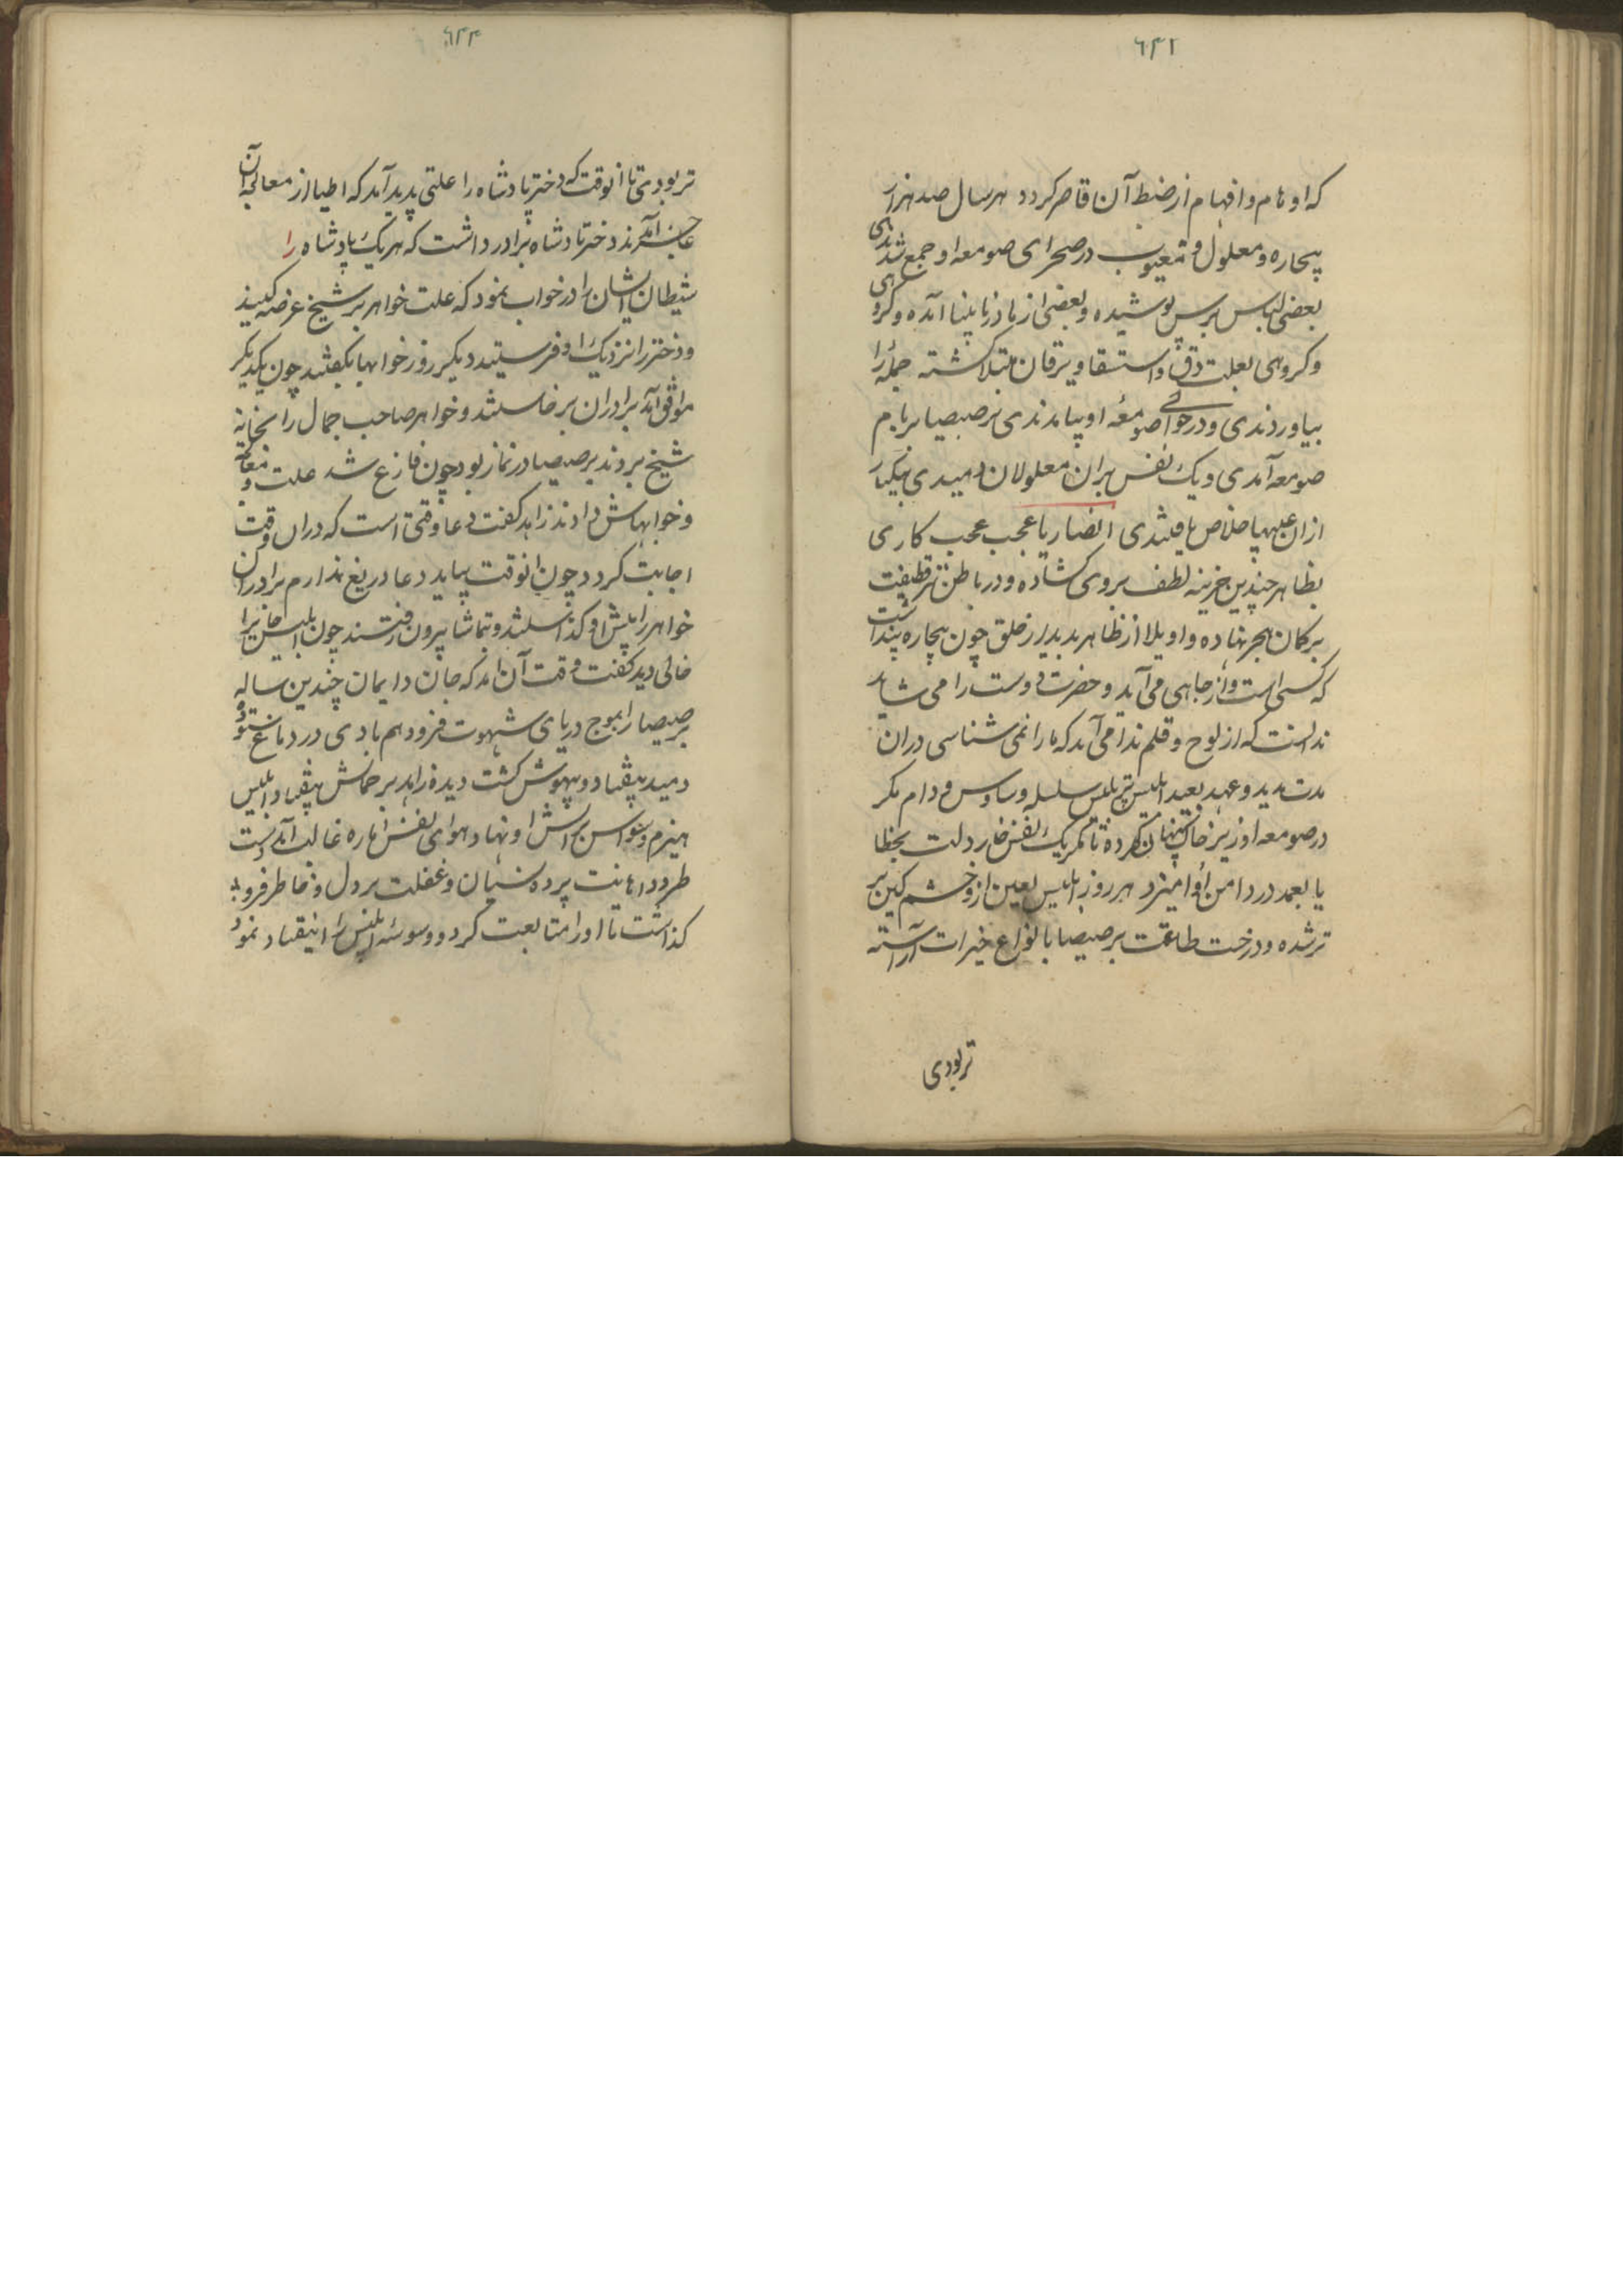 ٦٤١
که اوهام وافهام از ضبط آن قاصر کردد هر سال صد هزار
بیچاره ومعلول ومعیوب در صحرای صومعه او جمع شدندی
بعضی لباس برص پوشیده وبعضی از مادر نابینا آمده وکروهی
وکروهی بعلت دق واستسقا ویرقان مبتلا کشته جمله را
بیاوردندی ودر حوالی صومعه او بماندندی برصیصا بر بام
صومعه آمدی ویک نفس بران معلولان دمیدی بیکبار
ازان علتها خلاص یافتندی انصار یا عجب عجب کاری
بظاهر چندین خزینه لطف بروی کشاده ودر باطن تیر قطیعت
بر کمان هجر نهاده واویلا از ظاهر بدیدار خلق چون بیچاره پنداشت
که کسی است واز جاهی می آید وحضرت دوست را می شاید
ندانست که از لوح وقلم ندا می آمد که ما را نمی شناسی دران
مدت مدید وعهد بعید ابلیس پر تلبیس سلسله وساوس ودام مکر
در صومعه او زیر خاک پنهان کرده تا مکر یک نفس خار دلت بخطا
یا بعمد در دامن او آمیزد هر روز ابلیس لعین از خشم کین تیز
تر شده ودرخت طاعت برصیصا بانواع خیرات آراسته
تر بودی
٦٤٢
تر بودی تا انوقت که دختر پادشاه را علتی پدید آمد که اطبا از معالجه آن
عاجز آمدند دختر پادشاه برادر داشت که هر یک پادشاه را
شیطان ایشان را در خواب نمود که علت خواهر بر شیخ عرضه کنید
ودختر را نزدیک او فرستید دیکر روز خوابها بکفتند چون یکدیکر
موافق آمد برادران برخاستند وخواهر صاحب جمال را بخانه
شیخ بردند برصیصا در نماز بود چون فارغ شد علت ومعالجه
وخوابهاش دادند زاهد کفت دعا وقتی است که دران وقت
اجابت کردد چون انوقت بیاید دعا دریغ ندارم برادران
خواهر را پیش او کذاشتند وبتماشا بیرون رفتند چون ابلیس خانه را
خالی دید کفت وقت آن آمد که جان وایمان چندین ساله
برصیصا را بموج دریای شهوت فرو دهم بادی در دماغ مستوره
دمید بیفتاد وبیهوش کشت دیده زاهد بر جمالش بیفتاد وابلیس
هیزم وسواس بر آتش او نهاد وهوای نفس اماره غالب آمد دست
طرد واهانت پرده نسیان وغفلت بر دل وخاطر فرو
کذاشت تا او را متابعت کرد ووسوسه ابلیس را انتقیاد نمود